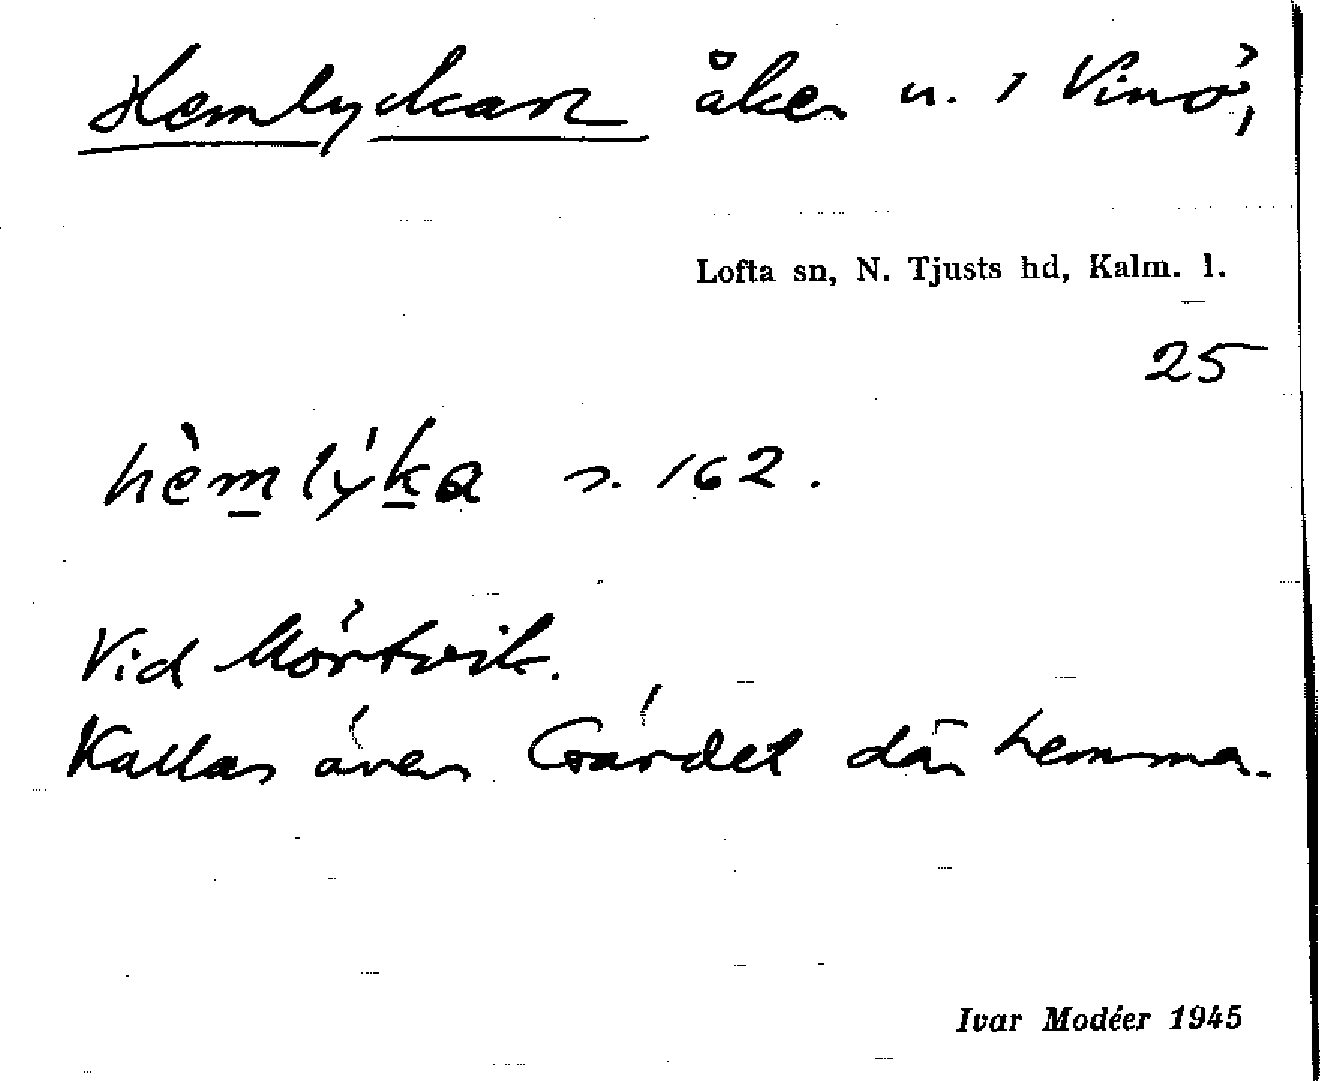 Hemlyckan åker u. 1 Vinö,
Lofta sn, N. Tjusts hd, Kalm. l.
25
hèmlýka s. 162.
Vid Mörtvik.
Kallas även Gärdet där hemma.
Ivar Modéer 1945